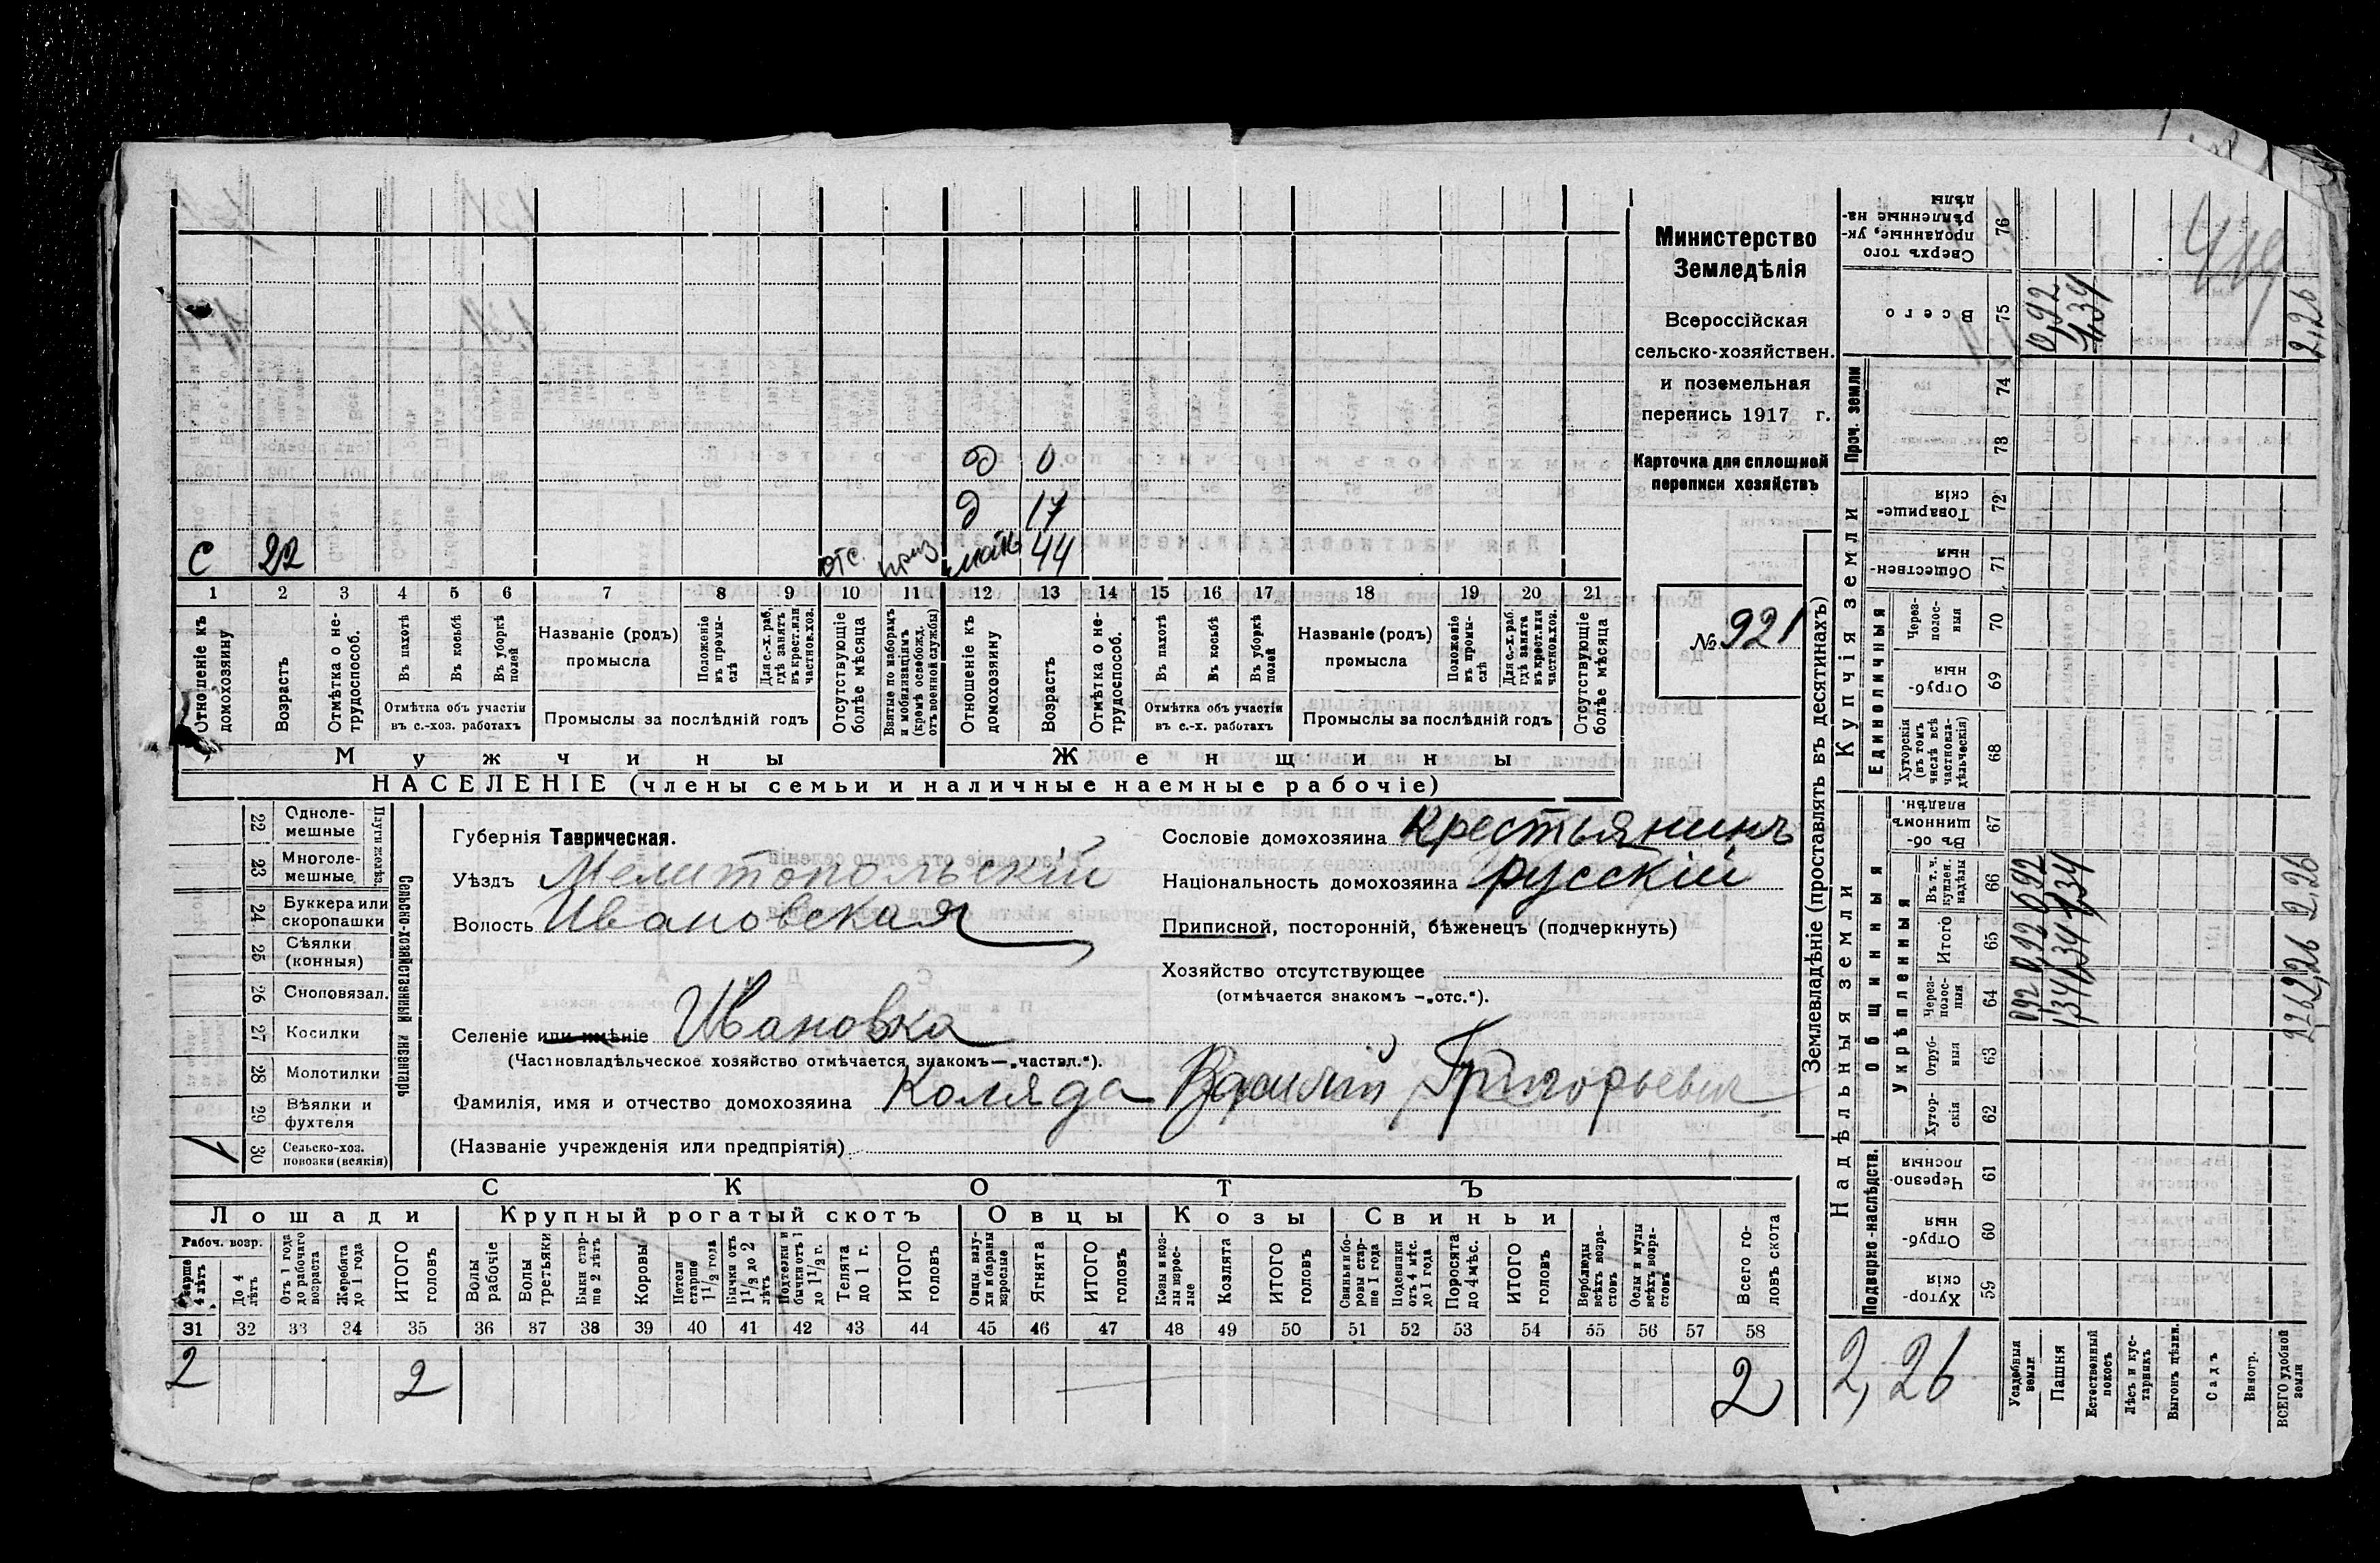 д 0
д 17
с 22 отс. приз мать 44
1 2 3 4 5 6 7 8 9 10 11 12 13 14 15 16 17 18 19 20 21
Отношеніе къ домохозяину
Возрастъ
Отмѣтка о не-трудоспособ.
Въ пахотѣ
Въ косьбѣ
Въ уборкѣ полей
Отмѣтка объ участіи
въ с.-хоз. работахъ
Названіе (родъ)
промысла
Положеніе въ промы-слѣ
Для с.-х. раб. гдѣ занятъ въ крест. или частнов. хоз.
Промыслы за послѣдній годъ
Отсутствующіе болѣе мѣсяца
Взятые по наборамъ и мобилизаціямъ (кромѣ освобожд. отъ военной службы)
Отношеніе къ домохозяину
Возрастъ
Отмѣтка о не-трудоспособ.
Въ пахотѣ
Въ косьбѣ
Въ уборкѣ полей
Отмѣтка объ участіи
въ с.-х. работахъ
Названіе (родъ)
промысла
Положеніе въ промы-слѣ
Для с.-х. раб. гдѣ занята въ крест. или частнов. хоз.
Промыслы за послѣдній годъ
Отсутствующіе болѣе мѣсяца
Мужчины Женщины
НАСЕЛЕНІЕ (члены семьи и наличные наемные рабочіе)
Министерство
Земледѣлія
Всероссійская
сельско-хозяйствен.
и поземельная
перепись 1917 г.
Карточка для сплошной
переписи хозяйствъ
№ 921
Сельско-хозяйственный инвентарь
Плуги желѣз.
22 Однолемешные
23 Многолемешные
24 Буккера или скоропашки
25 Сѣялки (конныя)
26 Сноповязал.
27 Косилки
28 Молотилки
29 Вѣялки и фухтеля
1 30 Сельско-хоз. повозки (всякія)
Губернія Таврическая.
Уѣздъ Мелитопольскій
Волость Ивановская
Селеніе или имѣніе Ивановка
(Частновладѣльческое хозяйство отмѣчается знакомъ—„частвл.“).
Фамилія, имя и отчество домохозяина Коляда Василій Григорьевич
(Названіе учрежденія или предпріятія)
Сословіе домохозяина крестьянинъ
Національность домохозяина русскій
Приписной, посторонній, бѣженецъ (подчеркнуть)
Хозяйство отсутствующее
(отмѣчается знакомъ —„отс.“).
СКОТЪ
Лошади Крупный рогатый скотъ Овцы Козы Свиньи
Рабоч. возр.
Старше 4 лѣтъ
До 4 лѣтъ
Отъ 1 года до рабочаго возраста
Жеребята до 1 года
ИТОГО головъ
Волы рабочіе
Волы третьяки
Быки стар-ше 2 лѣтъ
Коровы
Нетели старше 1 1/2 года
Бычки отъ 1 1/2 до 2 лѣтъ
Подтелки и бычки отъ 1 до 1 1/2 г.
Телята до 1 г.
ИТОГО головъ
Овцы валу-хи и бараны взрослые
Ягнята
ИТОГО головъ
Козы и коз-лы взрос-лые
Козлята
ИТОГО головъ
Свиньи и бо-ровы стар-ше 1 года
Подсвинки отъ 4 мѣс. до 1 года
Поросята до 4 мѣс.
ИТОГО головъ
Верблюды всѣхъ возра-стовъ
Ослы и мулы всѣхъ возра-стовъ
Всего го-ловъ скота
31 32 33 34 35 36 37 38 39 40 41 42 43 44 45 46 47 48 49 50 51 52 53 54 55 56 57 58
2 2 2
Землевладѣніе (проставлять въ десятинахъ)
Надѣльныя земли Купчія земли Проч. земли
Подворно-наслѣдств. Общинныя Единоличныя
Укрѣпленныя
Хутор-скія 59
Отруб-ныя 60
Черезпо-лосныя 61
Хутор-скія 62
Отруб-ныя 63
Через-полос-ныя 64
Итого 65
Въ т. ч. куплен. надѣлы 66
Въ об-щинномъ владѣн. 67
Хуторскія (въ томъ числѣ всѣ частновла-дѣльческія) 68
Отруб-ныя 69
Через-полос-ныя 70
Обществен-ныя 71
Товарище-скія 72
73
74
Всего 75
Сверхъ того проданные, ук-рѣпленные на-дѣлы 76
2,26
Усадебныя земли 0,92 0,92 0,92 0,92
Пашня 1,34 1,34 1,34 1,34
Естественный покосъ
Лѣсъ и кус-тарникъ
Выгонъ цѣлин.
Садъ
Виногр.
ВСЕГО удобной земли 2,26 2,26 2,26 2,26
419